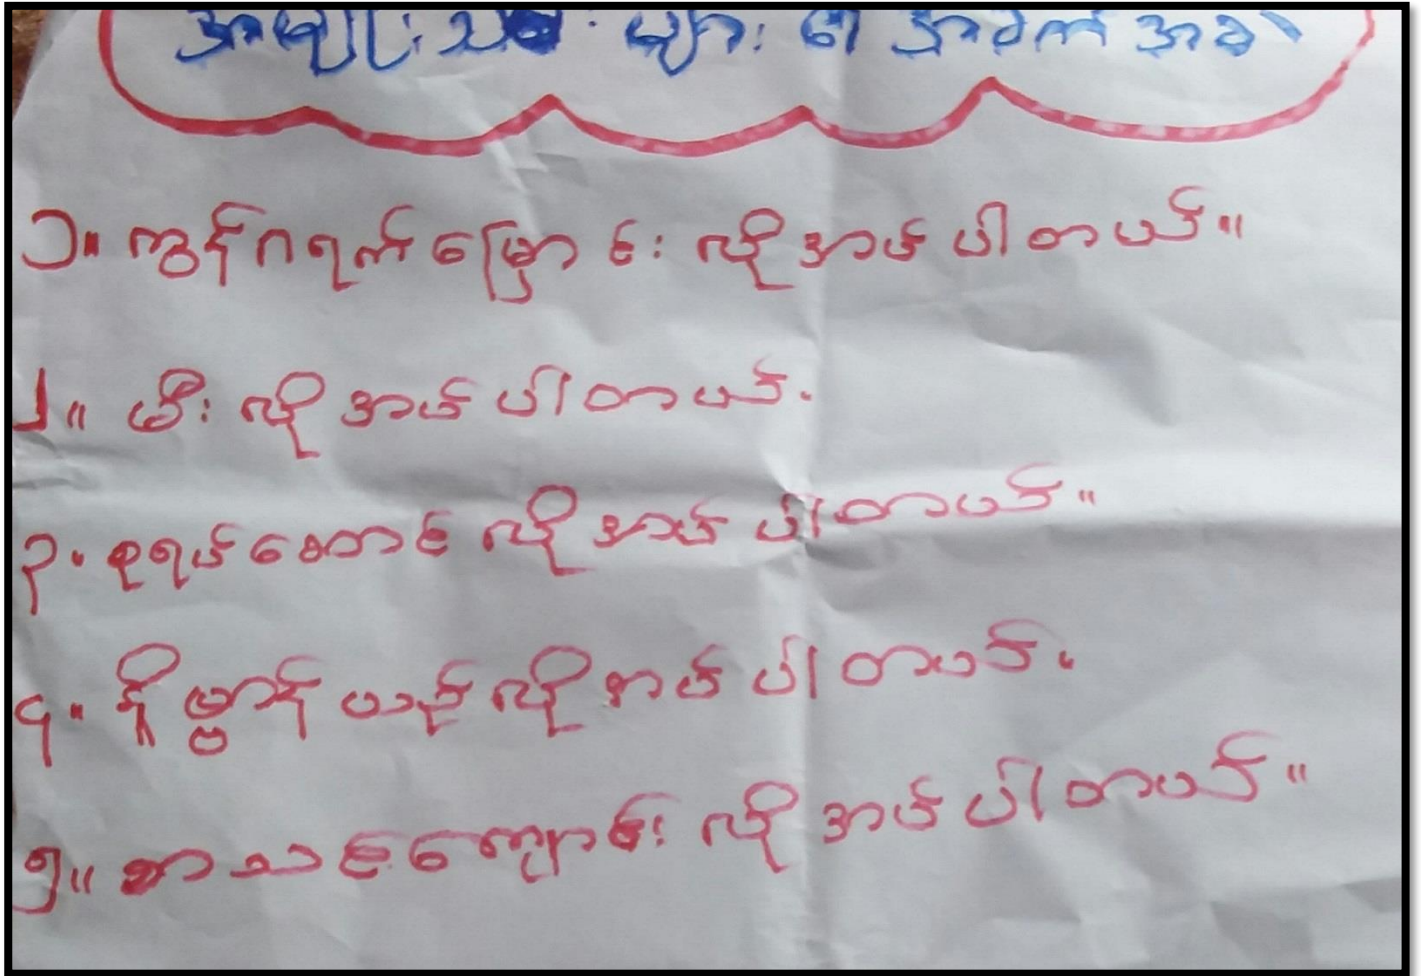 အမျိုးသမီးများ၏ အခက်အခဲ
၁။ ကွန်ဂရက်မြောင်း လိုအပ်ပါတယ်။
၂။ မီး လိုအပ်ပါတယ်.
၃. စုရပ်ဆောင် လိုအပ်ပါတယ်။
၄။ ရှိမ္မာန်ယာဉ် လိုအပ်ပါတယ်.
၅။ စာသင်ကျောင်း လိုအပ်ပါတယ်။